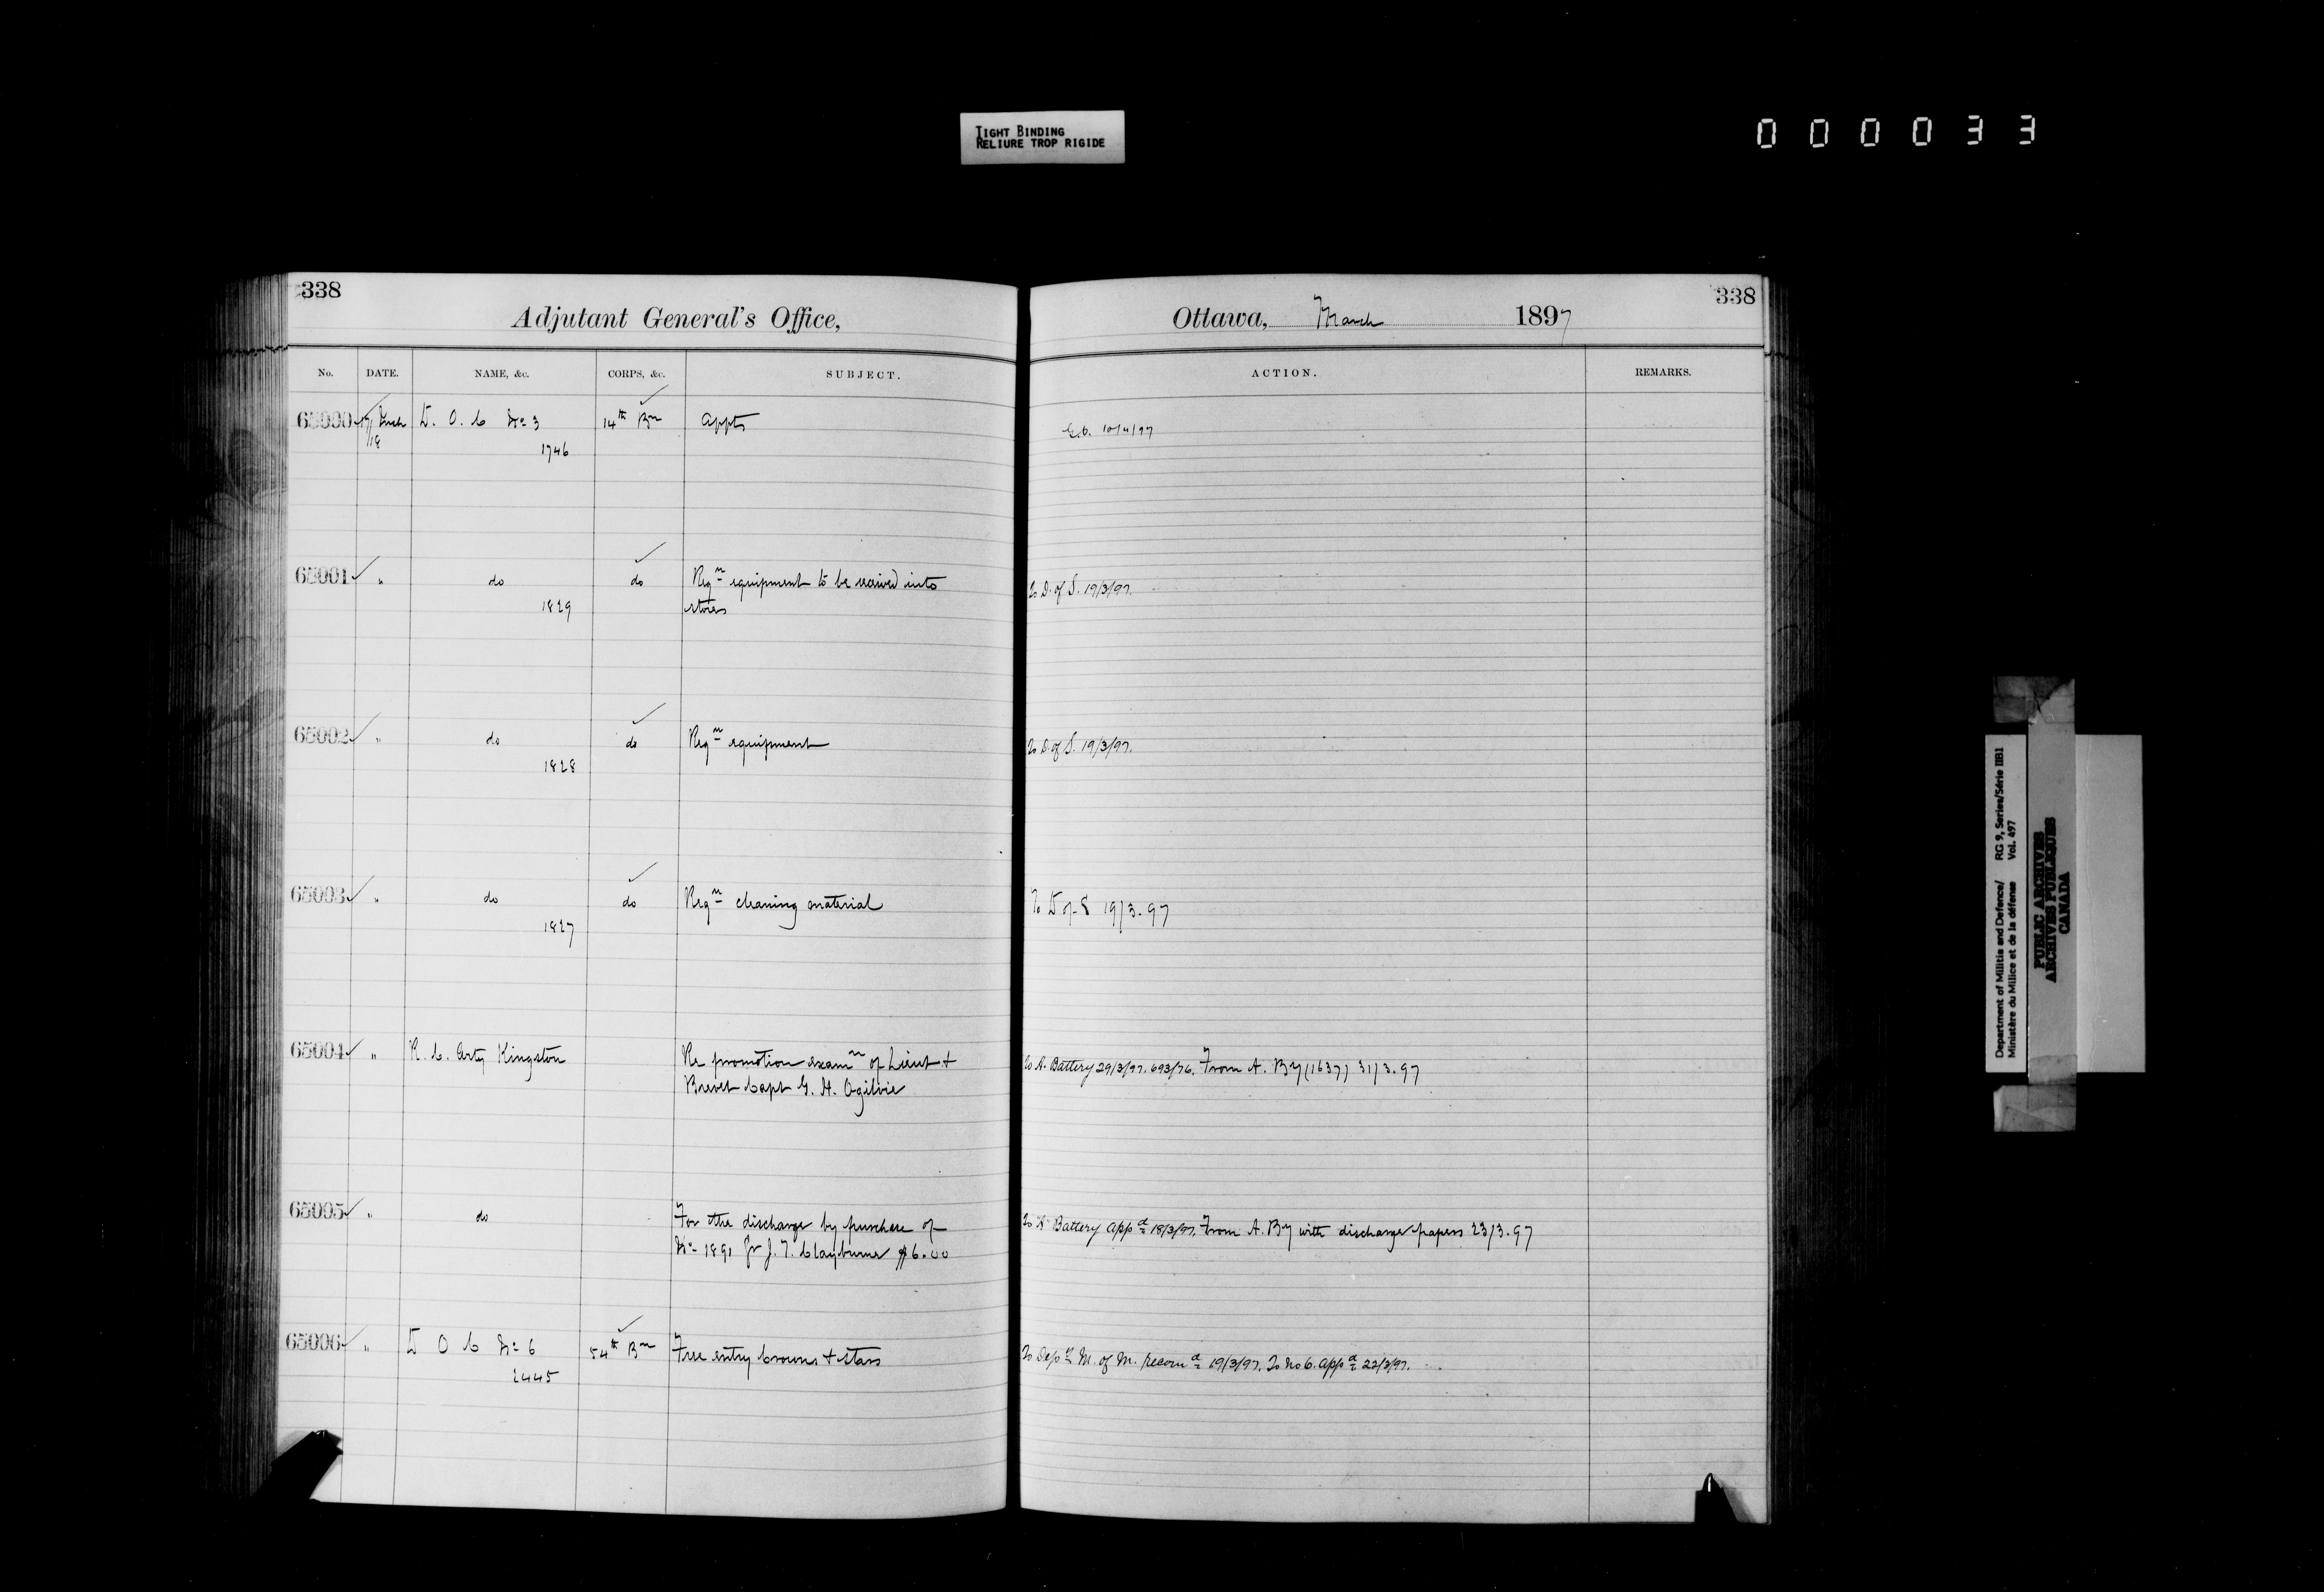 TIGHT BINDING
RELIURE TROP RIGIDE
000033
338
Adjutant General's Office,
No. DATE. NAME, &c. CORPS, &c. SUBJECT.
65000 17 Mch D. O. C No 3 14th Bn Appts
18 1746
65001 " do do Reqn equipment to be received into
1829 stores
65002 " do do Reqn equipment
1828
65003 " do do Reqn cleaning material
1827
65004 " R. C. Arty Kingston Re promotion examn of Lieut +
Brevet Capt G. H. Ogilvie
65005 " do For the discharge by purchase of
No 1891 Gr J. T. Clayburne $6.00
65006 " D O C No 6 54th Bn Free entry Crowns + stars
2445
338
Ottawa, March 1897
ACTION. REMARKS.
G.O. 10/4/97
To D. of S. 19/3/97.
To D. of S. 19/3/97.
To D of S 19/3.97
To A. Battery 29/3/97. 693/76. From A. By (1637) 31/3.97
To A Battery appd 18/3/97. From A. By with discharge papers 23/3.97
To Depy M. of M. recomd 19/3/97. To No 6. appd 22/3/97.
Department of Militia and Defence/ RG 9, Series/Série IIB1
Ministère du Milice et de la défense Vol. 497
PUBLIC ARCHIVES
ARCHIVES PUBLIQUES
CANADA